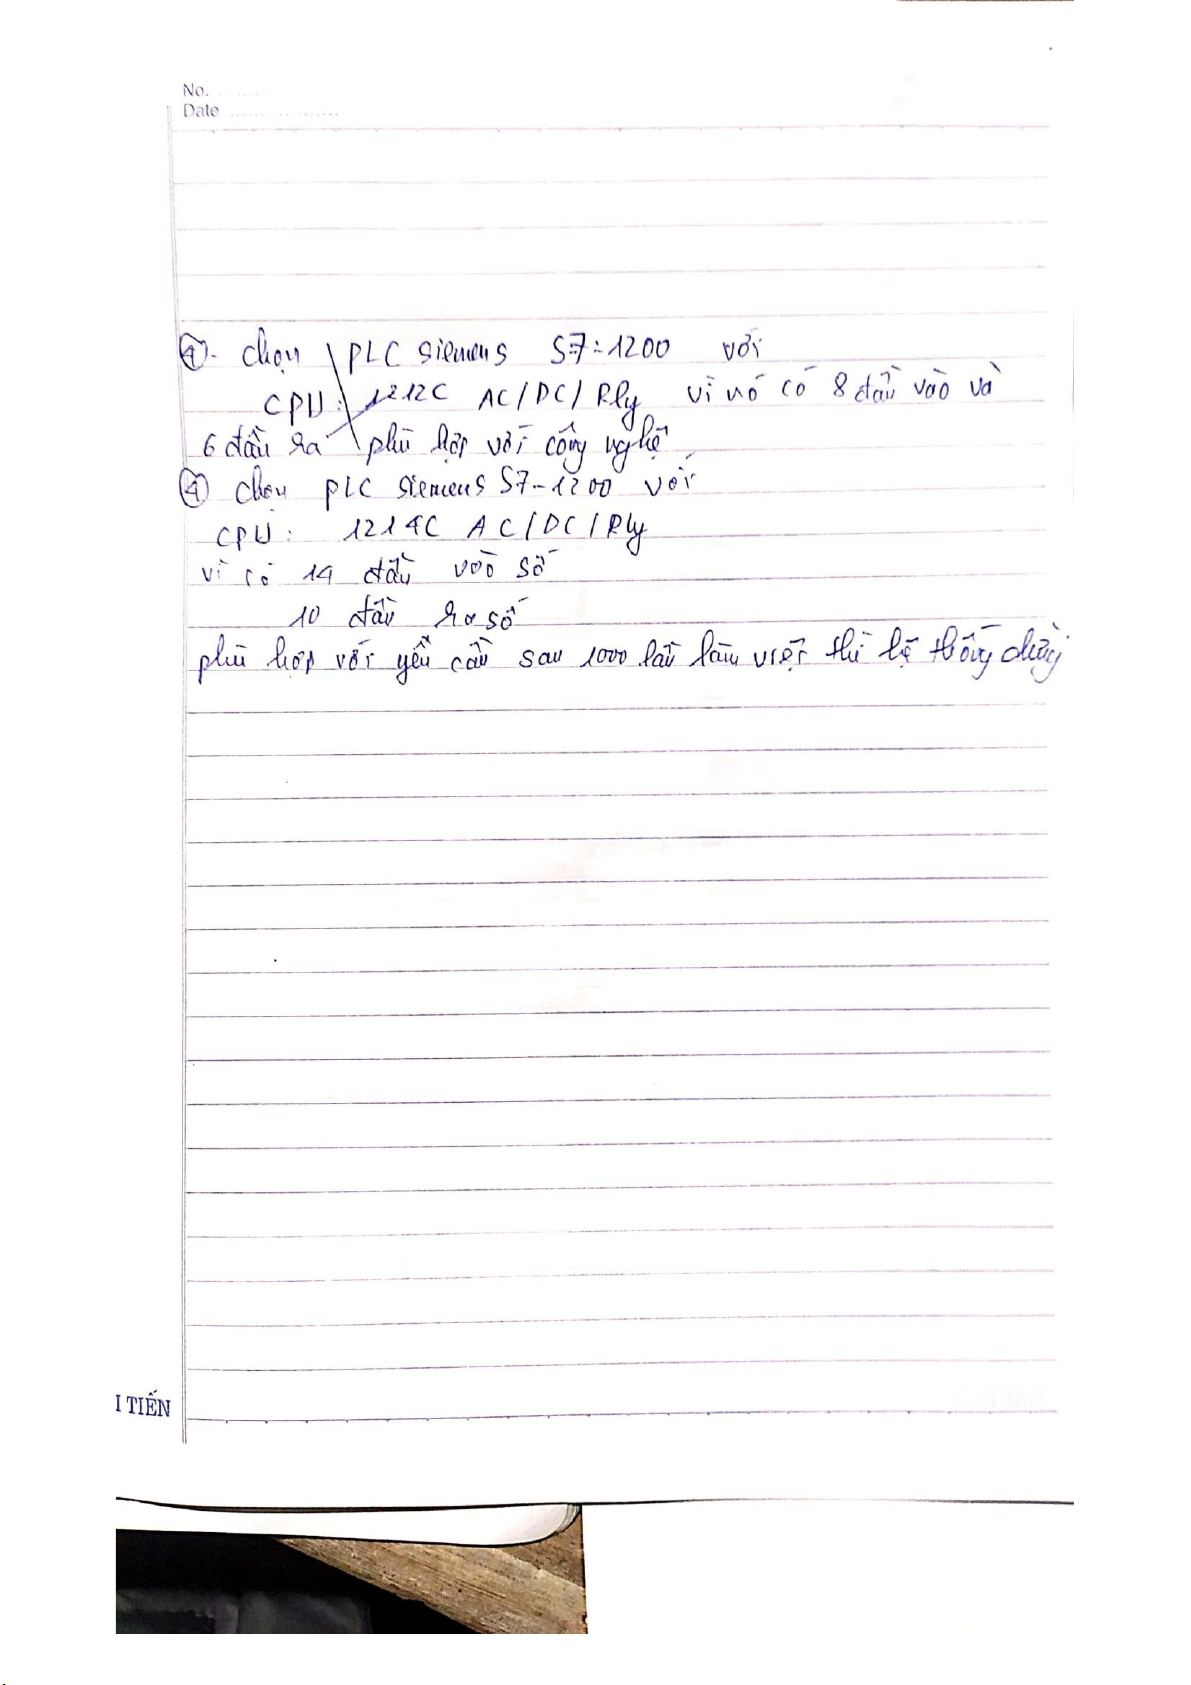 No. .........
Date ..................
④. chọn PLC siemens S7-1200 với
CPU: 1212C AC/DC/Rly vì nó có 8 đầu vào và
6 đầu ra phù hợp với công nghệ
④ chọn PLC siemens S7-1200 với
CPU: 1214C AC/DC/Rly
vì có 14 đầu vào số
10 đầu ra số
phù hợp với yêu cầu sau 1000 lần làm việc thì hệ thống dừng
I TIẾN